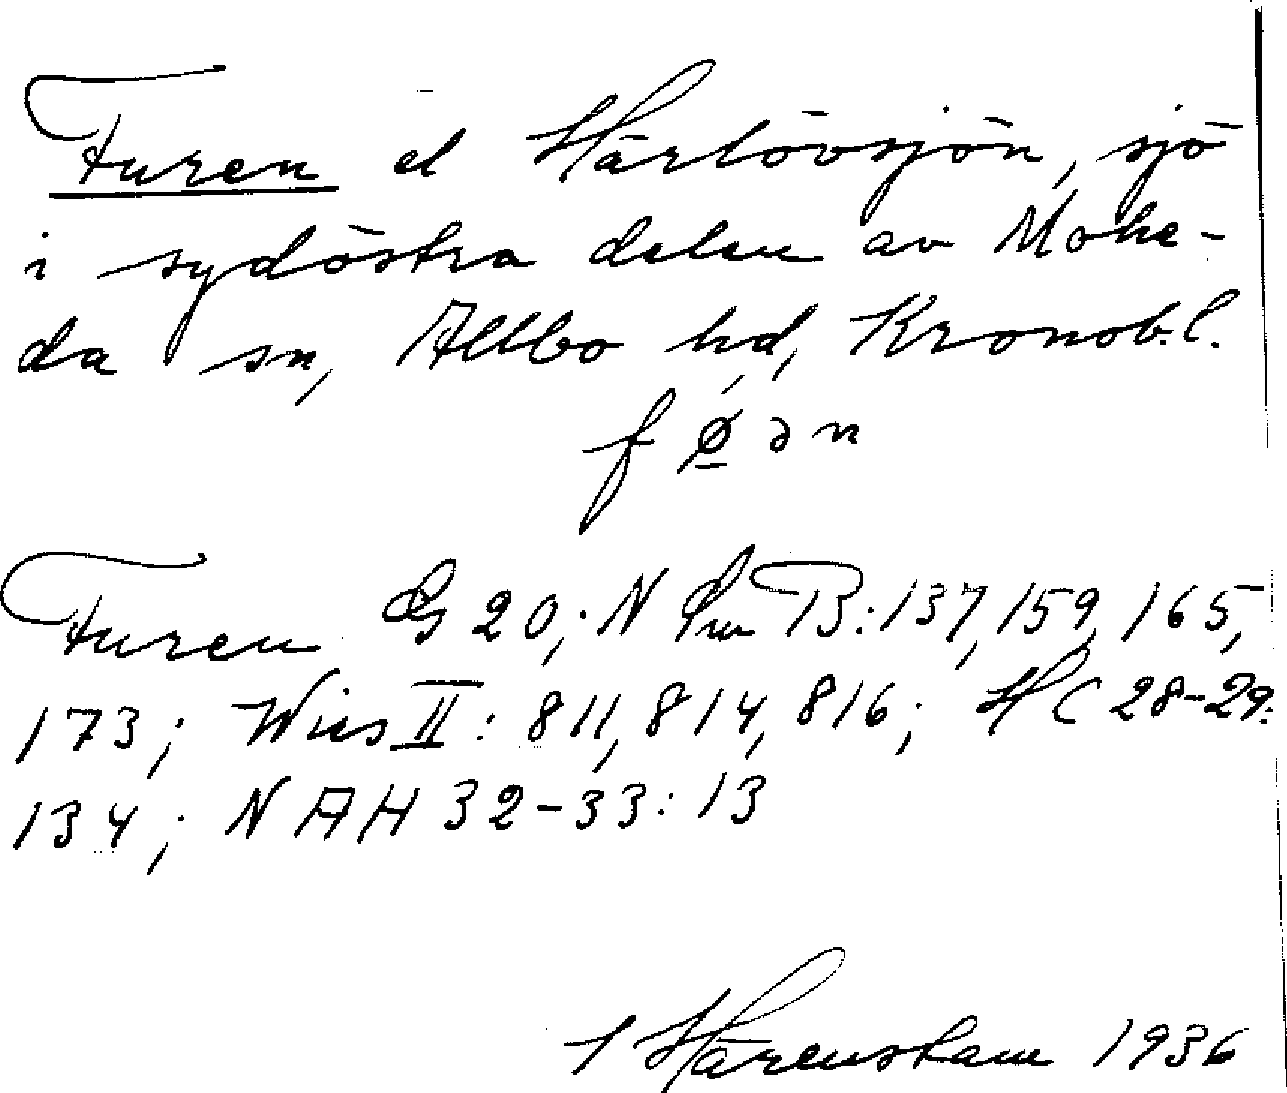 Furen el Härlövsjön, sjö
i sydöstra delen av Mohe-
da sn, Allbo hd, Kronob. l.
føən
Furen G 20; N Sm B: 137, 159, 165,
173; Wies II: 811, 814, 816; HC 28-29:
134; NAH 32-33: 13
Härenstam 1936